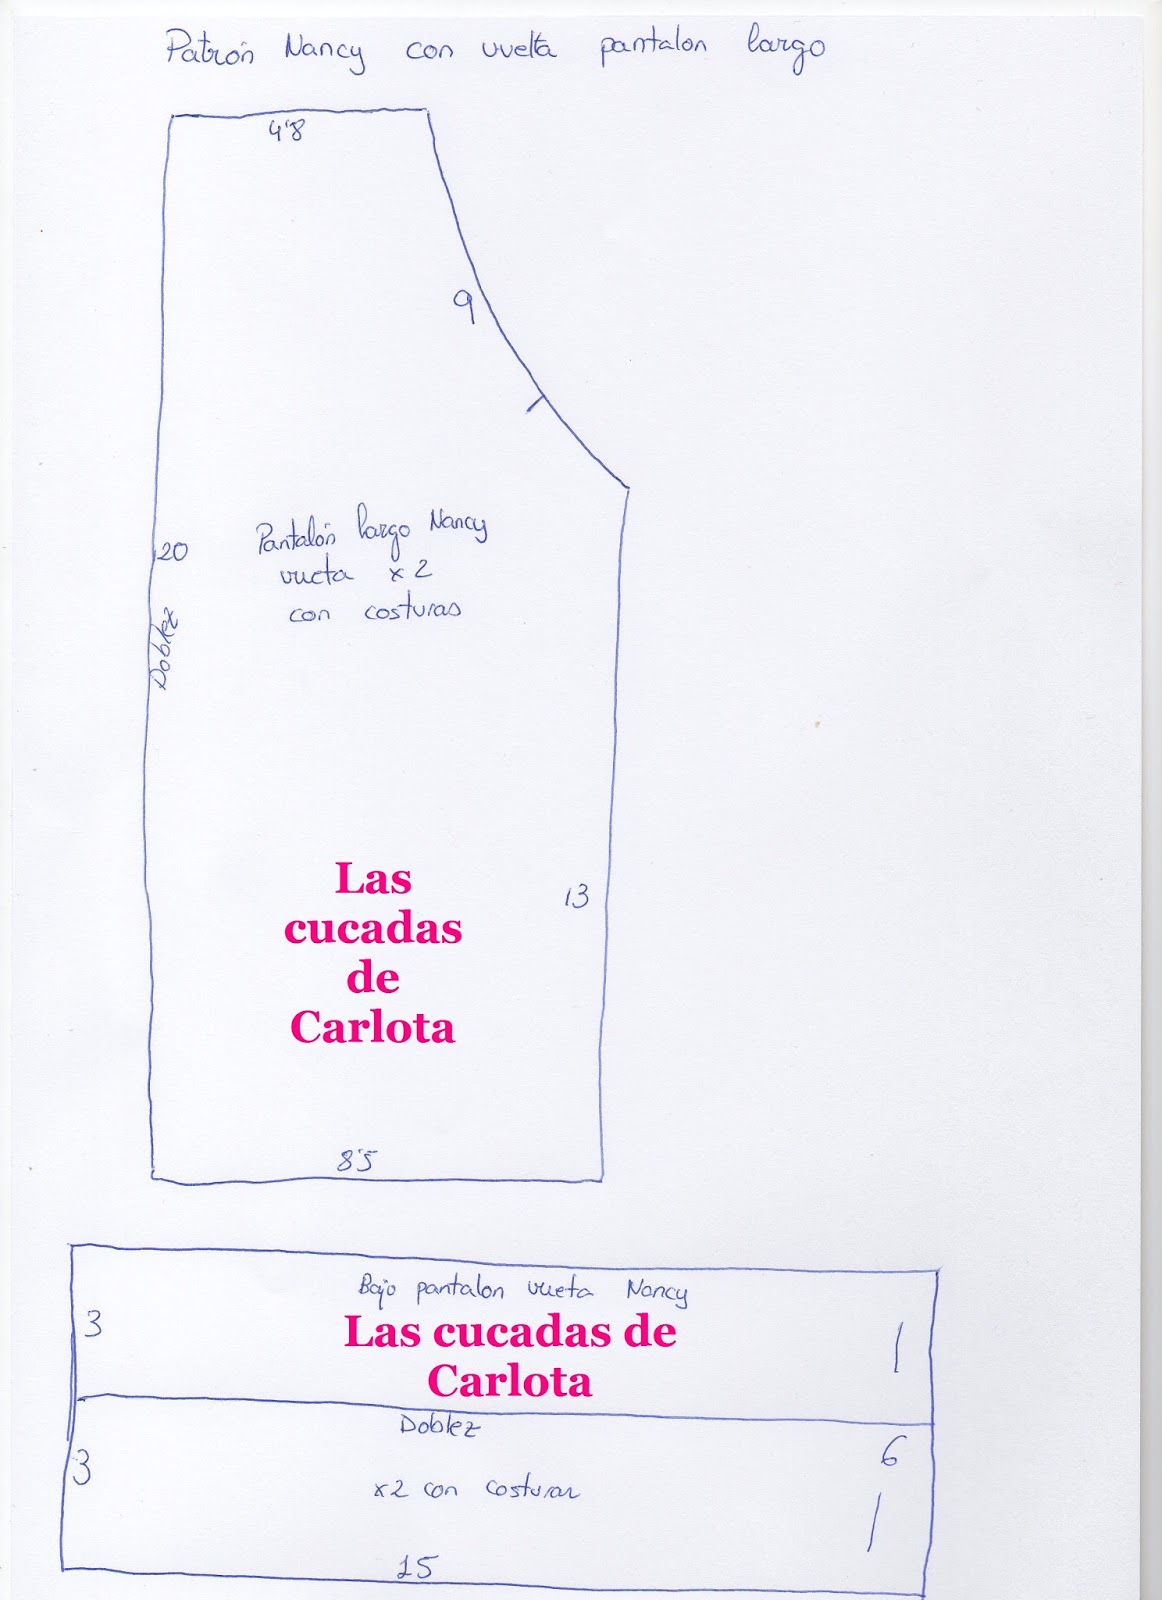 Patrón Nancy con vuelta pantalon largo
4'8
9
20
Pantalón largo Nancy
vuelta x 2
con costuras
Doblez
Las
cucadas
de
Carlota
13
8'5
Bajo pantalon vuelta Nancy
3
Las cucadas de
Carlota
Doblez
6
3
x2 con costuras
15